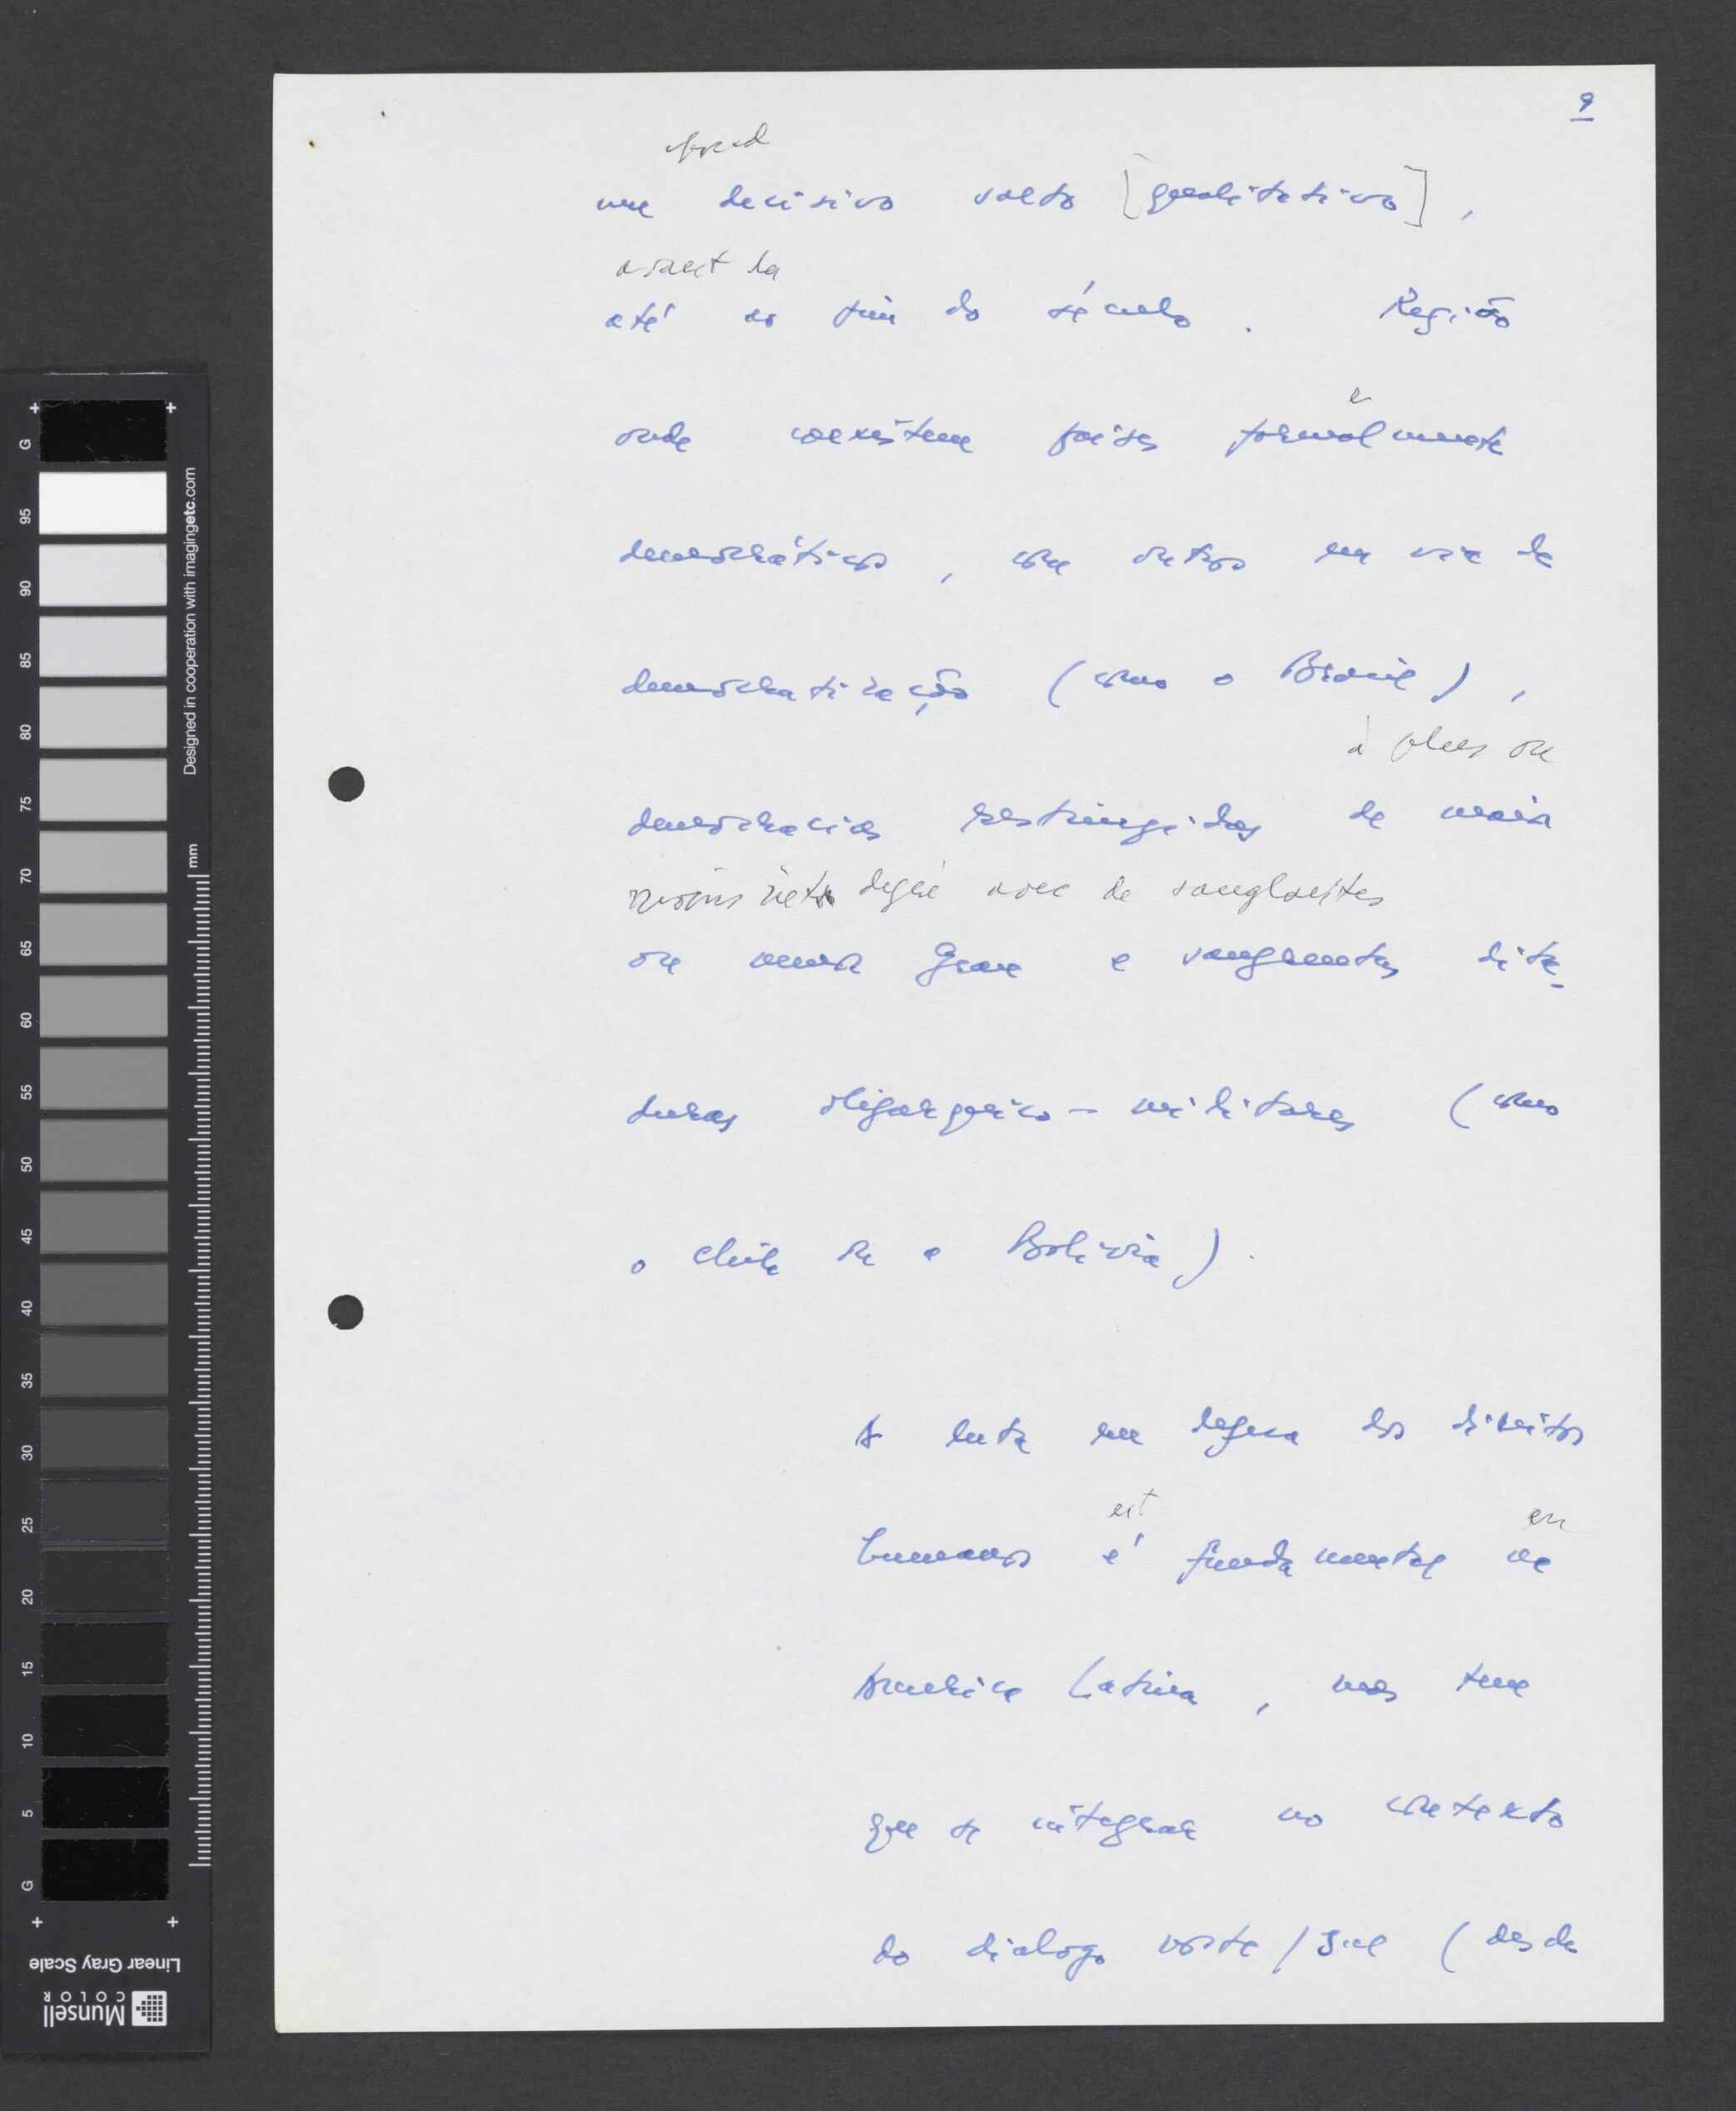 9
um decisivo salto [qualitativo],
avant la
até ao fim do século. Região
e
onde coexistem países formalmente
democráticos, com outros em via de
democratização (como o Brasil),
à plus ou
democracias restringidas de maior
moins degré avec de sanglantes
ou menor grau e sangrentas dita-
duras oligarquico-militares (como
o Chile ou a Bolivia).
A luta em defesa dos direitos
est en
humanos é fundamental na
America Latina, mas tem
que se integrar no contexto
do dialogo norte/sul (desde
G
95
90
85
80
75
70
65
60
55
50
45
40
35
30
25
20
15
10
5
G
mm
Designed in cooperation with imagingetc.com
Linear Gray Scale
Munsell
COLOR